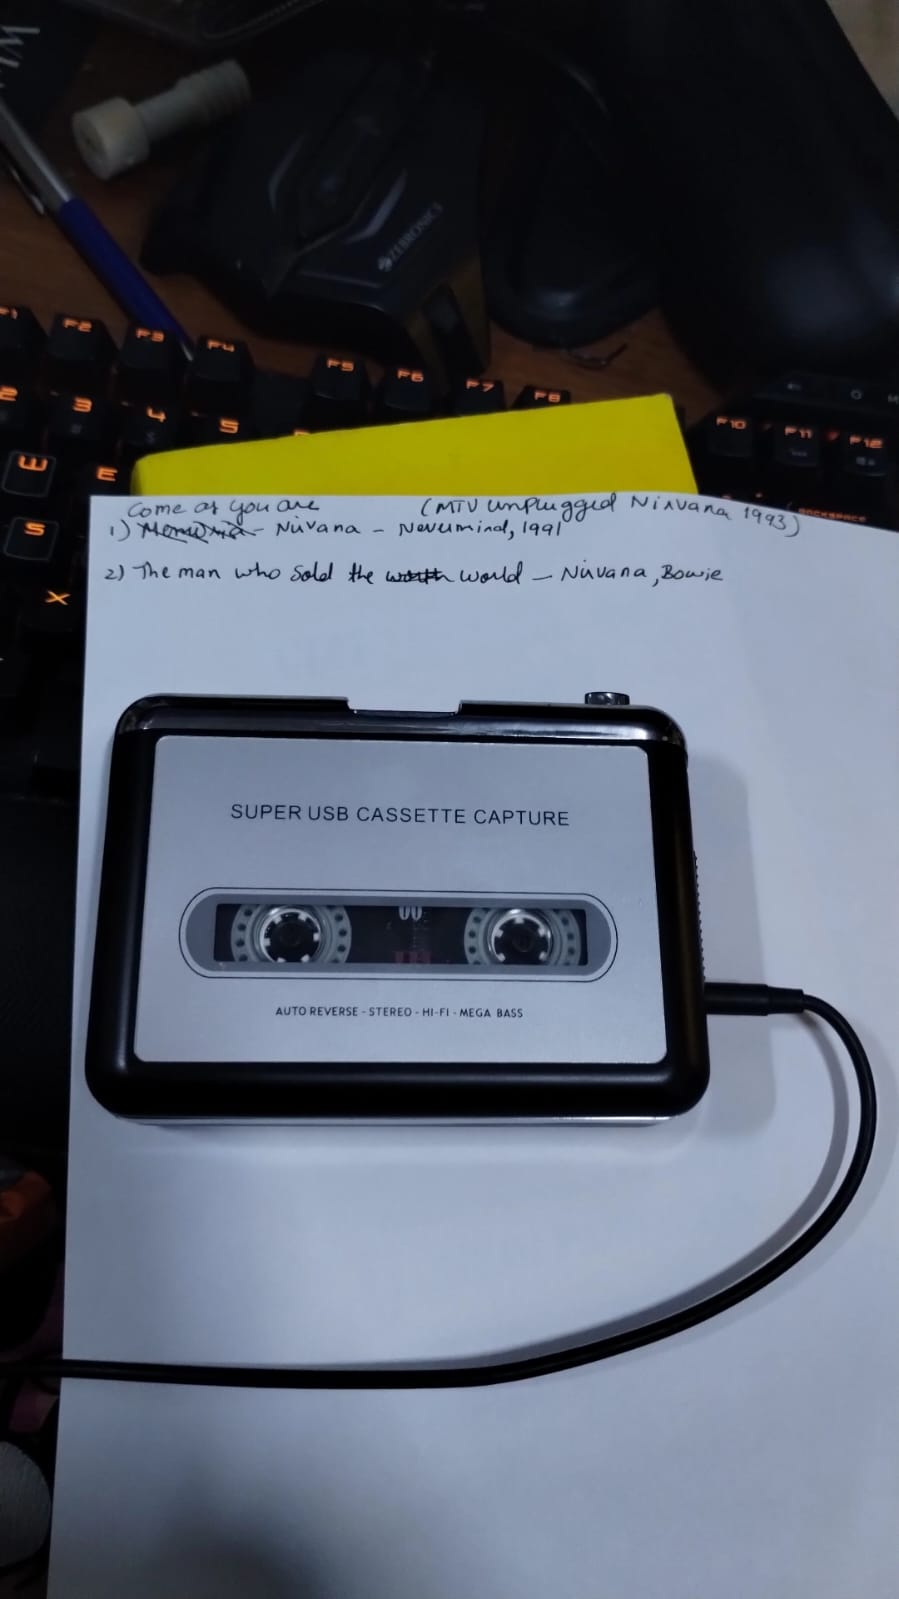 ZEBRONICS
F1 F2 F3 F4 F5 F6 F7 F8 F10 F11 F12
2 3 4 5
W E
S
X
BACKSPACE
Come as you are (MTV unplugged Nirvana 1993)
1) Nirvana - Nevermind, 1991
2) The man who sold the world - Nirvana, Bowie
SUPER USB CASSETTE CAPTURE
AUTO REVERSE - STEREO - HI-FI - MEGA BASS